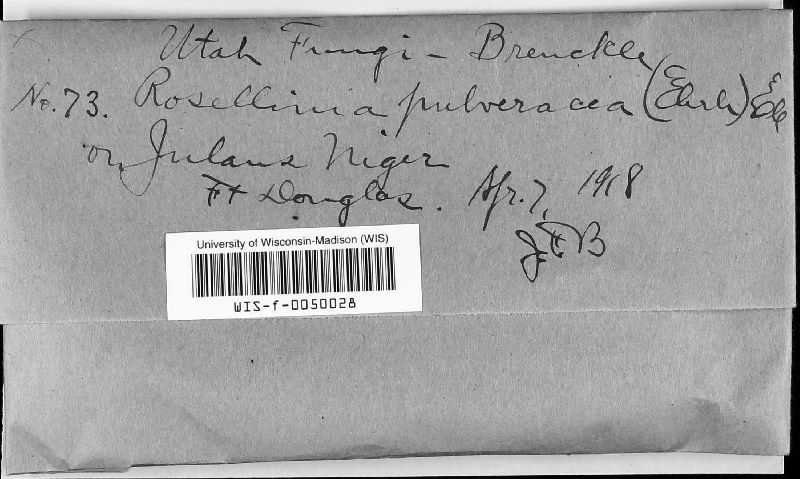 Utah Fungi - Brenckle
No. 73. Rosellinia pulveracea (Ehrh) Ell
on Julans Niger
Ft Douglas. Apr. 7, 1918
J F B
University of Wisconsin-Madison (WIS)
WIS-f-0050028